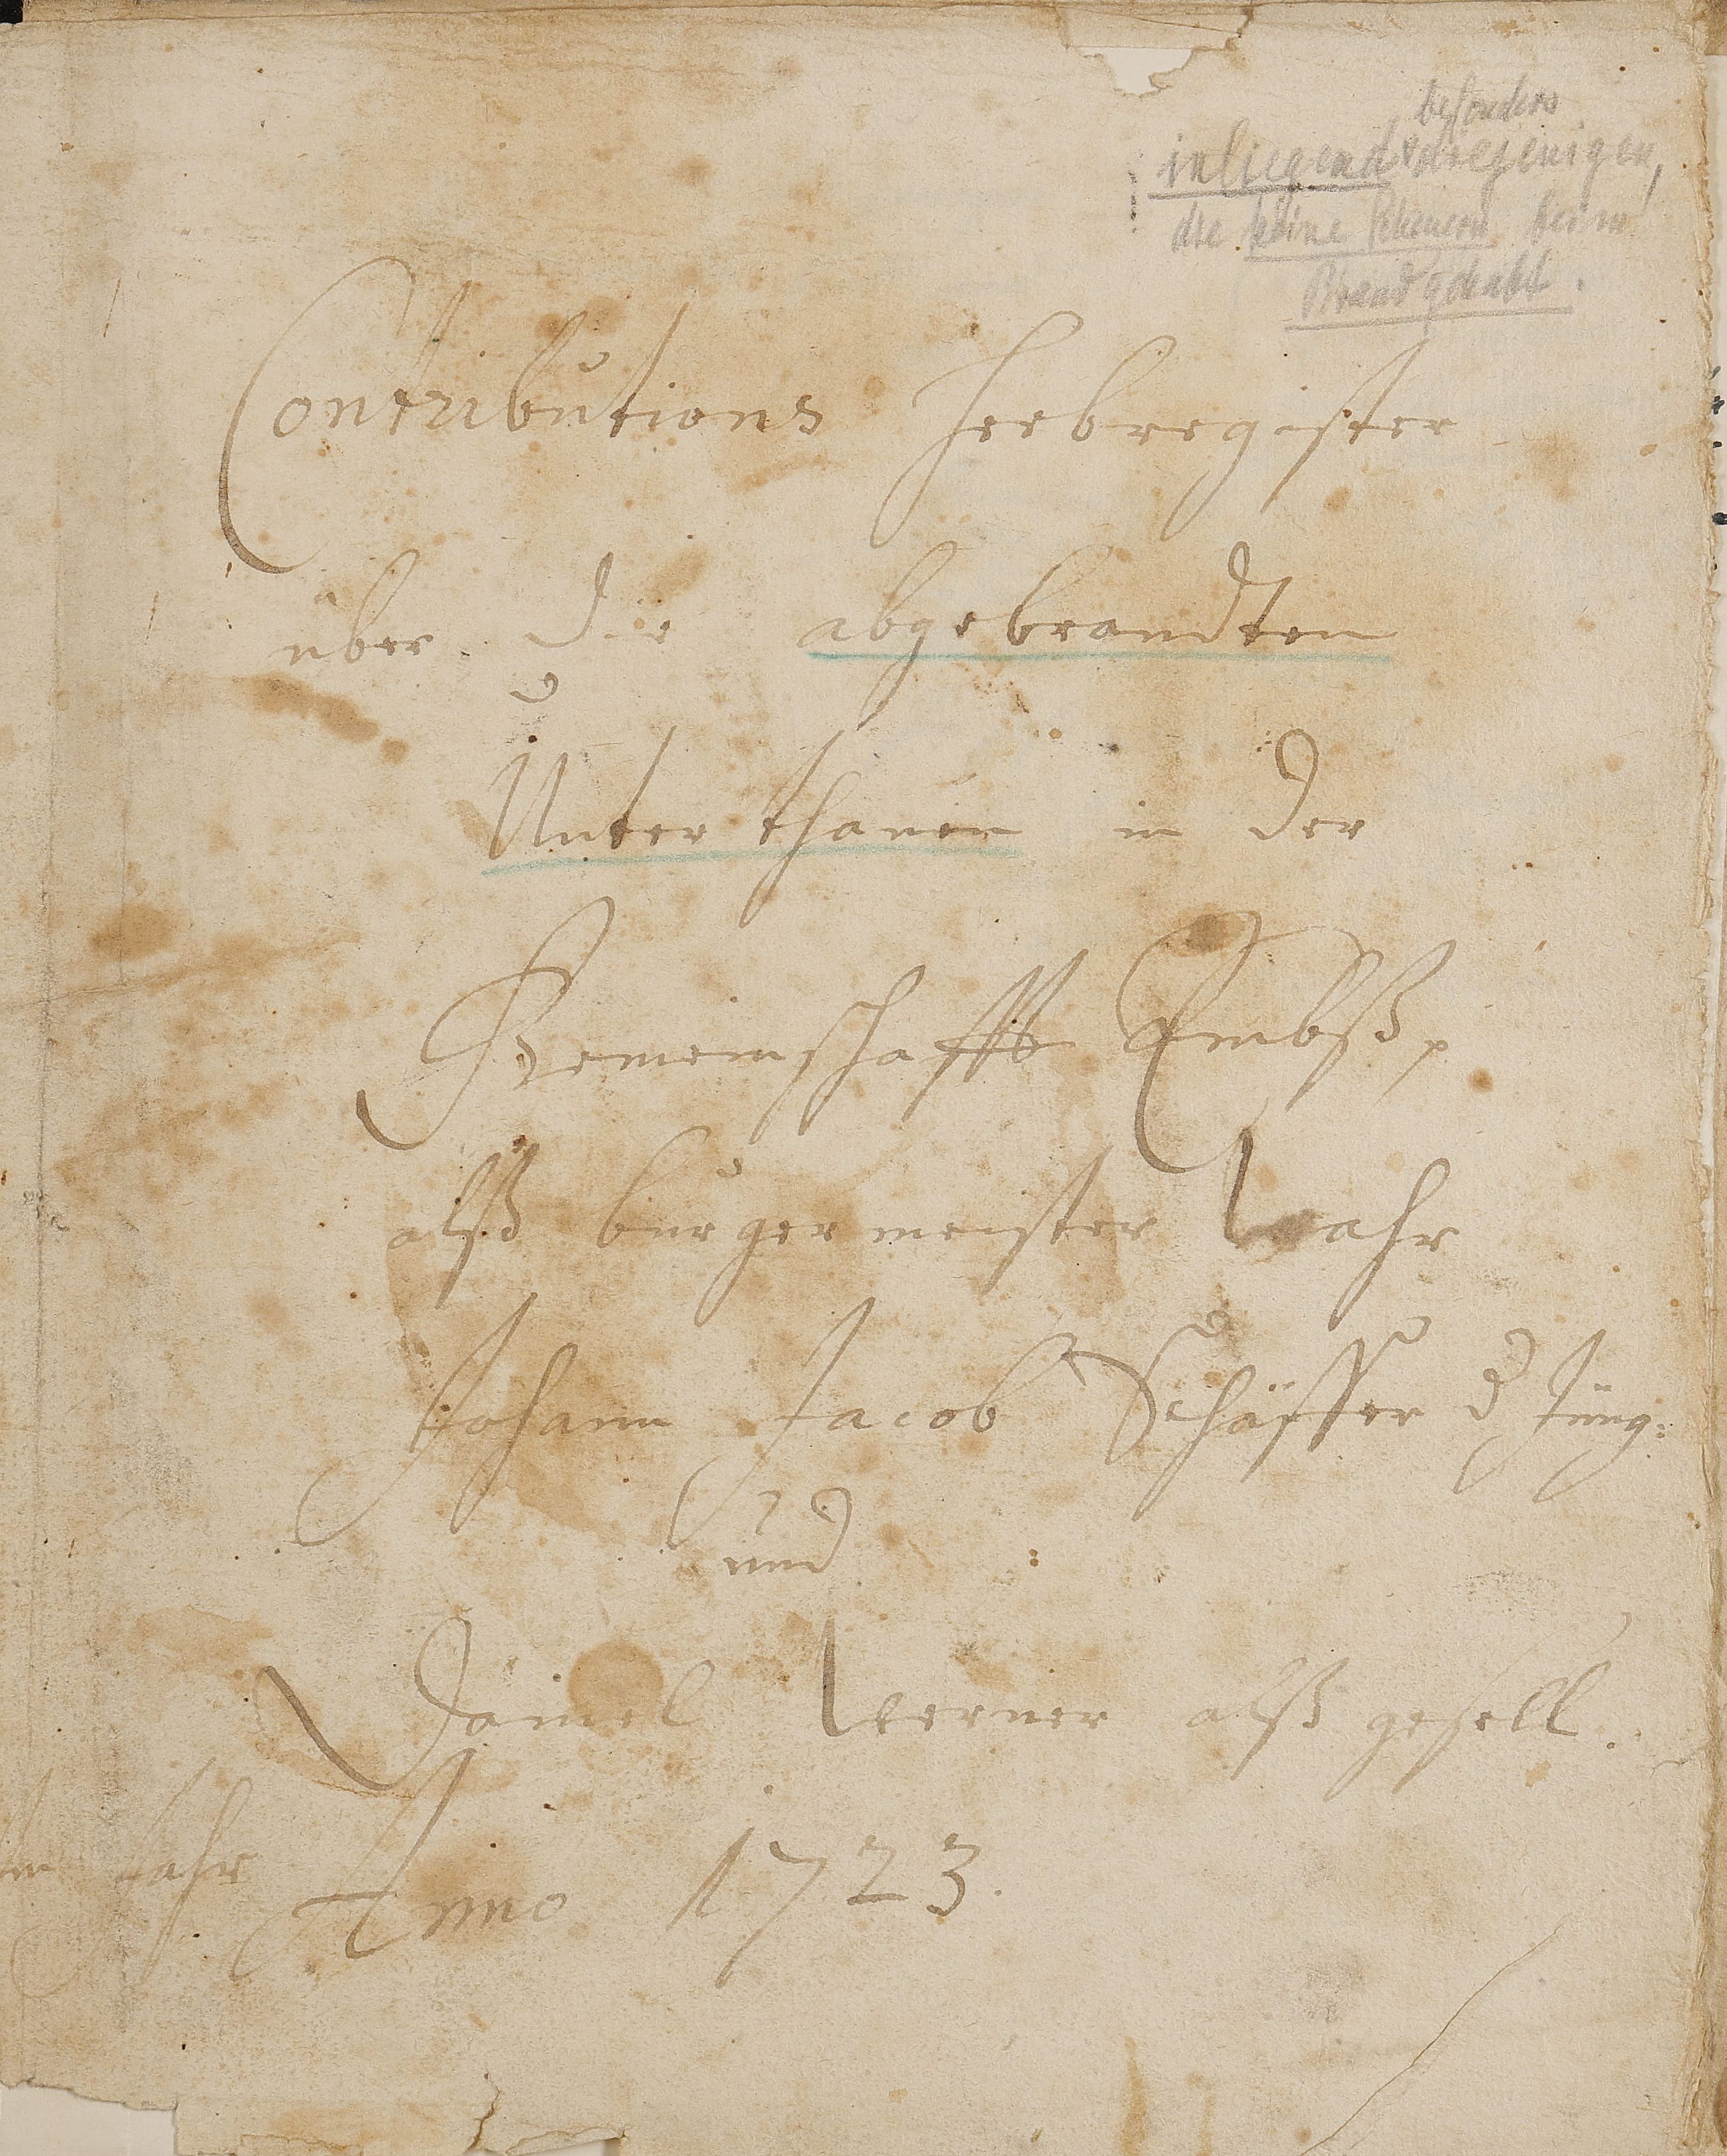 besonders
inliegend diejenigen,
die keine Scheuern beim
Brand gehabt.
Contributions Heebregister
über die abgebrandten
Unterthanen in der
Gemeinschafft Embß,
alß burgermeister wahr
Johann Jacob Schäffer d Jüng:
und
Daniel Werner alß gesell.
Jahr Anno 1723.